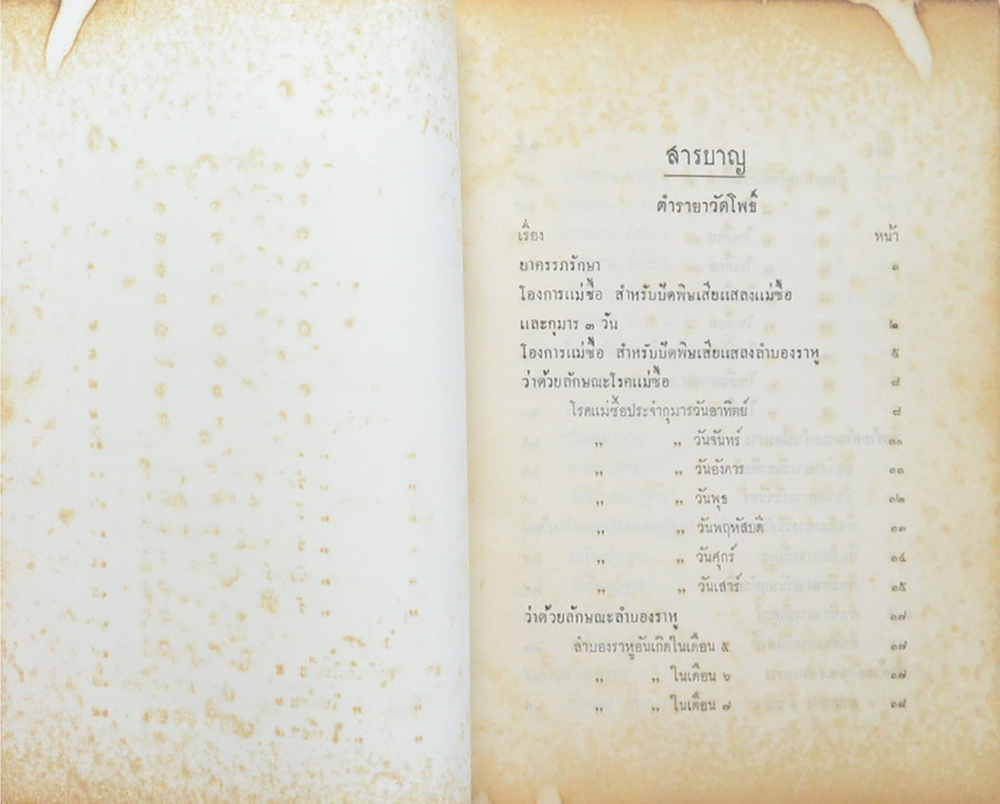 สารบาญ
ตำรายาวัดโพธิ์
เรื่อง หน้า
ยาครรภรักษา ๑
โองการแม่ซื้อ สำหรับปัดพิษเสียแสลงแม่ซื้อ
และกุมาร ๓ วัน ๒
โองการแม่ซื้อ สำหรับปัดพิษเสียแสลงลำบองราหู ๕
ว่าด้วยลักษณะโรคแม่ซื้อ ๘
โรคแม่ซื้อประจำกุมารวันอาทิตย์ ๘
,, ,, วันจันทร์ ๑๐
,, ,, วันอังคาร ๑๑
,, ,, วันพุธ ๑๒
,, ,, วันพฤหัสบดี ๑๓
,, ,, วันศุกร์ ๑๔
,, ,, วันเสาร์ ๑๕
ว่าด้วยลักษณะลำบองราหู ๑๗
ลำบองราหูอันเกิดในเดือน ๕ ๑๗
,, ,, ในเดือน ๖ ๑๗
,, ,, ในเดือน ๗ ๑๘